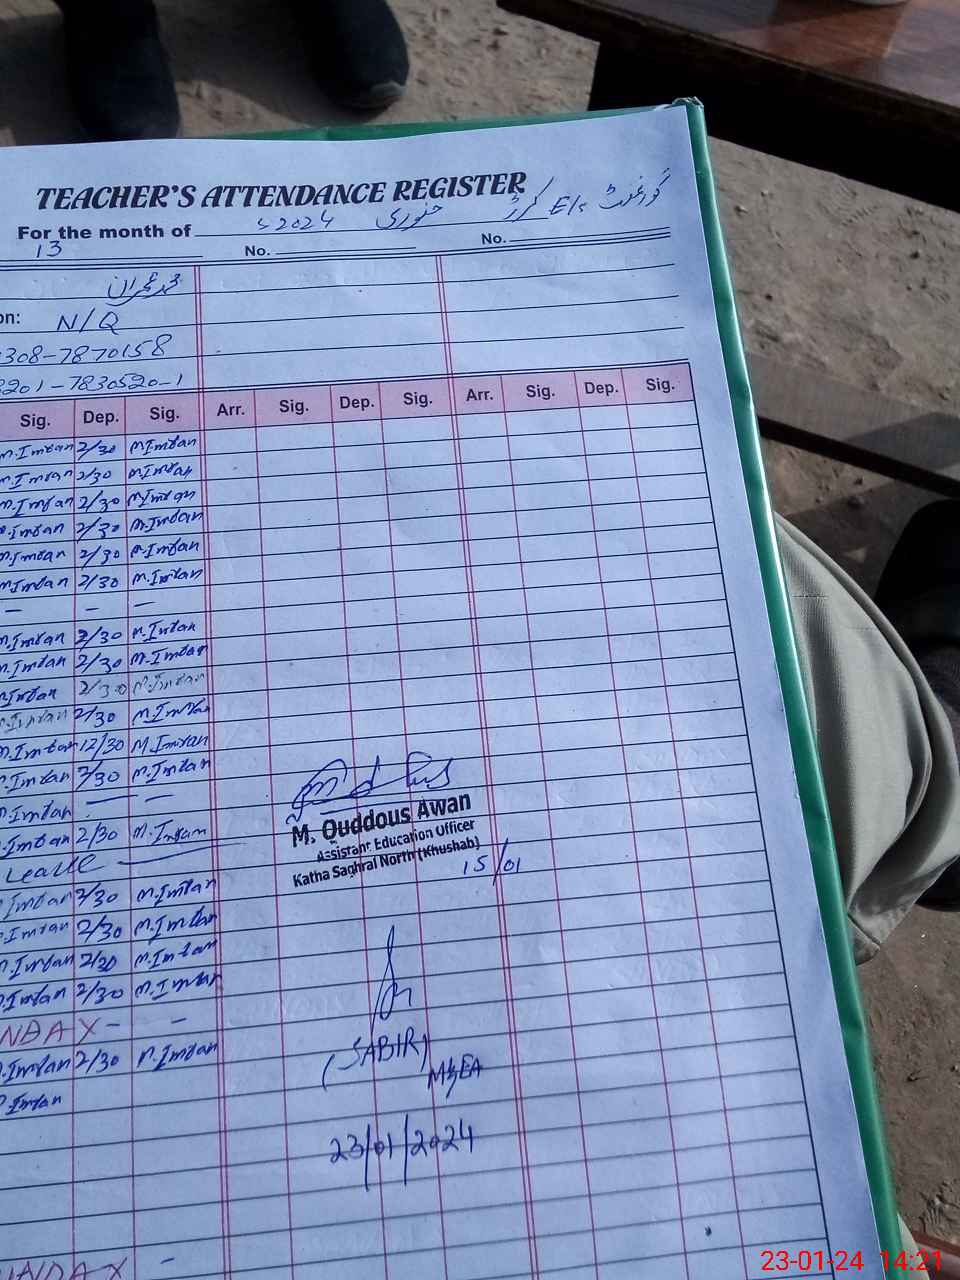 TEACHER'S ATTENDANCE REGISTER
For the month of جنوری 2024ء
گورنمنٹ E/s
13 No. No.
محمد عمران
on: N/Q
308-7870158
8201-7830520-1
Sig. Dep. Sig. Arr. Sig. Dep. Sig. Arr. Sig. Dep. Sig.
M.Imran 2/30 M.Imran
M.Imran 2/30 M.Imran
M.Imran 2/30 M.Imran
M.Imran 2/30 M.Imran
M.Imran 2/30 M.Imran
M.Imran 2/30 M.Imran
— — —
M.Imran 2/30 M.Imran
M.Imran 2/30 M.Imran
M.Imran 2/30 M.Imran
M.Imran 2/30 M.Imran
M.Imran 12/30 M.Imran
M.Imran 2/30 M.Imran
M.Imran — —
M.Imran 2/30 M.Imran
Leave
M. Quddous Awan
Assistant Education Officer
Katha Saghral North (Khushab)
15/01
M.Imran 2/30 M.Imran
M.Imran 2/30 M.Imran
M.Imran 2/30 M.Imran
M.Imran 2/30 M.Imran
NDAX - -
M.Imran 2/30 M.Imran
M.Imran
(SABIR)
MEA
23/01/2024
UNDAX -
23-01-24 14:21